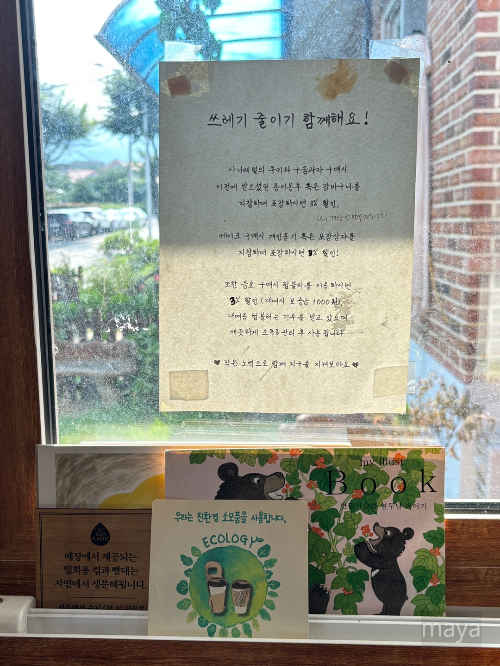 쓰레기 줄이기 함께해요!
쿠키와 구움과자 구매시
이전에 받으셨던 종이봉투 혹은 장바구니를
지참하여 포장하시면 3% 할인,
케이크 구매시 개인용기 혹은 포장상자를
지참하여 포장하시면 할인!
또한 음료 구매시 텀블러를 이용하시면
3% 할인 (대여시 보증금 1000원),
대여용 텀블러는 기부를 받고 있으며
깨끗하게 소독관리 후 사용됩니다
♥ 작은 노력으로 함께 지구를 지켜보아요 ♥
my illust
Book
우리는 친환경 소모품을 사용합니다.
ECOLOGY
매장에서 제공되는
일회용 컵과 빨대는
자연에서 생분해됩니다.
maya